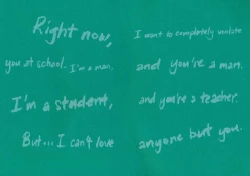 Right now,
you at school. I'm a man.
I'm a student,
But... I can't love
I want to completely violate
and you're a man.
and you're a teacher.
anyone but you.